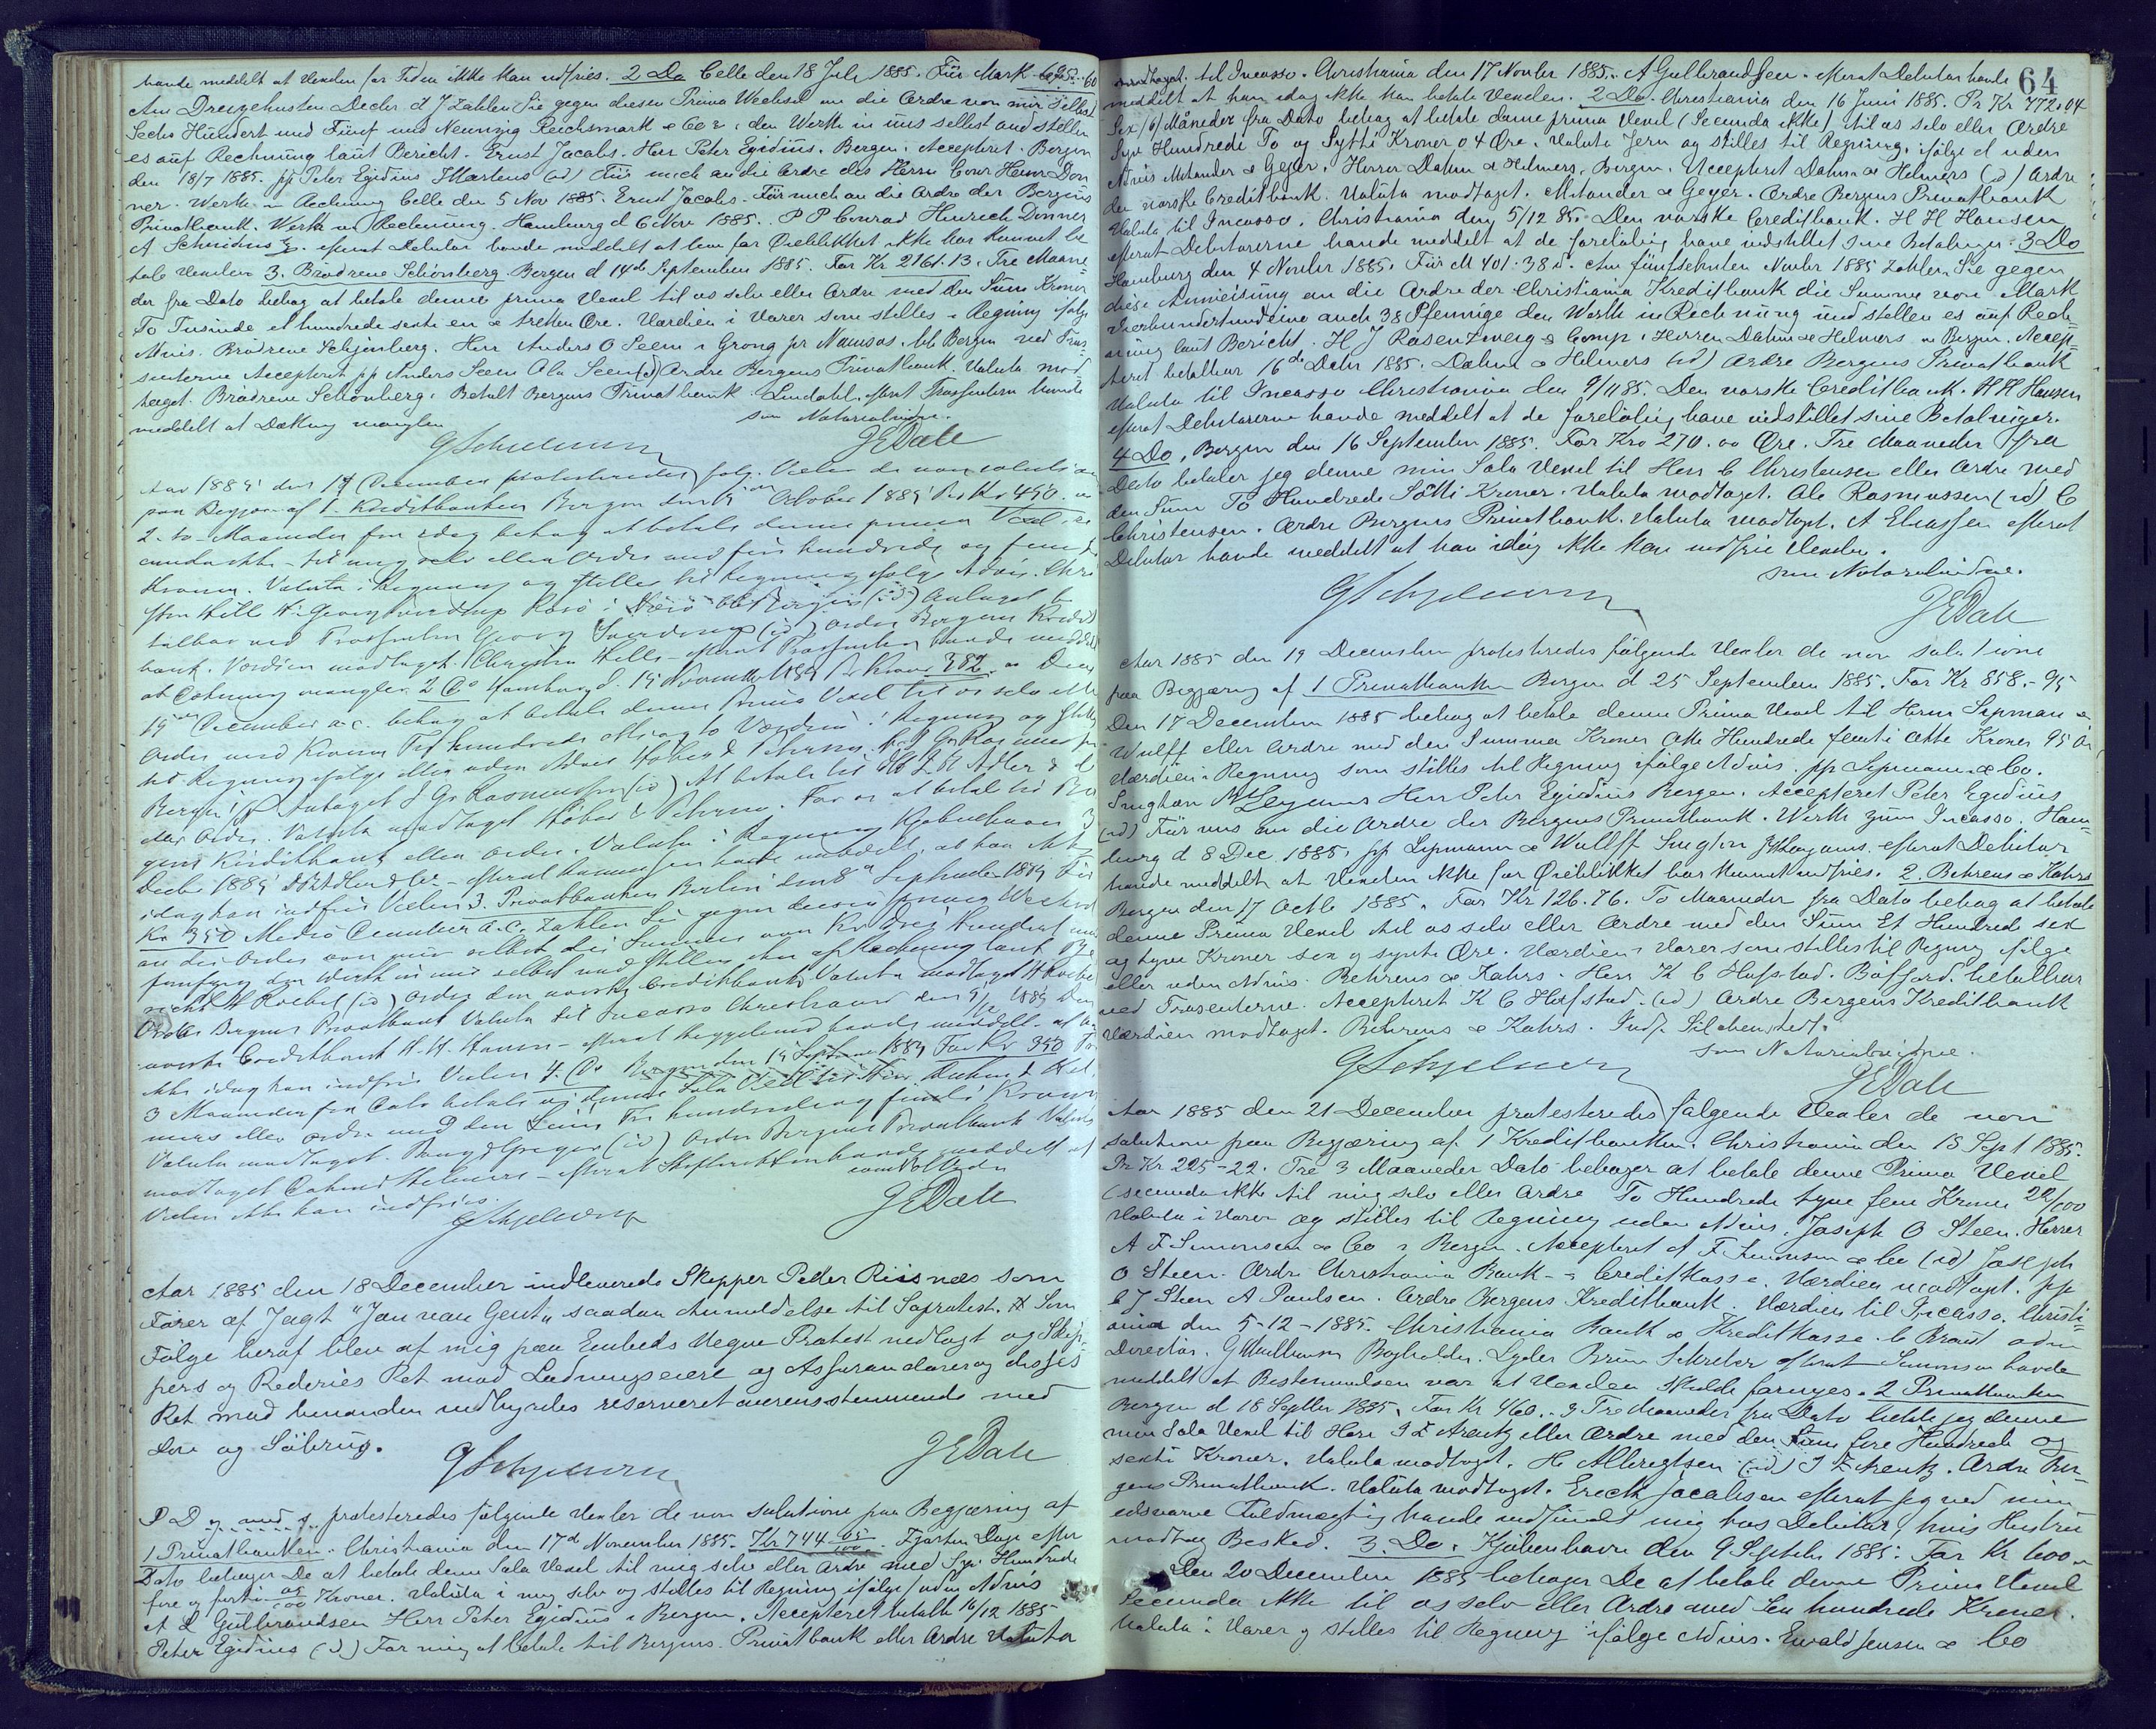 havde meddelt at Vexelen for Tiden ikke kan indfries. 2 Do Celle den 18 Juli 1885. Für Mark 695.60
Am Dreizehnten Decbr. d J zahlen Sie gegen diesen Prima Wechsel an die Ordre von mir selbst
Sechs Hundert und Fünf und Neunzig Reichsmark & 60 den Werth in uns selbst und stellen
es auf Rechnung laut Bericht. Ernst Jacobs. Herr Peter Egidius. Bergen. Accepteret. Bergen
den 18/7 1885. pp Peter Egidius J Martens (id) Für mich an die Ordre des Herrn Conr Heinr Don
ner. Werth in Rechnung Celle den 5 Nov 1885. Ernst Jacobs. Für mich an die Ordre der Bergens
Privatbank. Werth in Rechnung. Hamburg d 6 Nov 1885. P P Conrad Hinrich Donner
A Schmidt efterat Debitor havde meddelt at han for Øieblikket ikke har kunnet be
tale Vexelen 3. Brødrene Schönberg Bergen d 14de September 1885. For Kr. 2161.13. Tre Maane
der fra Dato behag at betale denne prima Vexel til os selv eller Ordre med den Sum Kroner
To Tusinde et hundrede sexti en & tretten Øre. Værdien i Varer som stilles i Regning ifølge
Advis. Brødrene Schjönberg. Herr Anders O Seem i Grong pr Namsos. btb Bergen ved Tras
senterne Accepteret pp Anders Seem Ola Seem (id) Ordre Bergens Privatbank. Valuta mod
taget. Brødrene Schönberg. Betalt Bergens Privatbank Lindahl. efterat Trassenten havde
meddelt at Dækning mangler som Notarialvidne.
G Schjelderup J E Dale
Aar 1885 den 17 December protesteredes følg. Vexler de non solutione
paa Begjæring af 1. Kreditbanken Bergen den 15 October 1885 For Kr 450.
2. to Maaneder fra idag behag at betale denne prima Vexel
cunda ikke til mig selv eller Ordre med fire hundrede og femti
Kroner. Valuta i Regning og stilles til Regning ifølge Advis. Chri
sten Hille Hr Georg Sverdrup (id) Antaget be
talbar ved Trassenten Georg Sverdrup (id) Ordre Bergens Kredit
bank. Værdien modtaget. Christen Hille efterat Trassenten havde meddelt
at Dækning mangler. 2 Do Hamburg d. 15 November 1885 For Kroner 382. Den
15 December a.c. behag at betale denne Prima Vexel til os selv eller
Ordre med Kroner Tre hundrede otti og to Værdien i Regning og stilles
til Regning ifølge eller uden Advis J Gr Rasmussen
Bergen Antaget J Gr Rasmussen (id) At betale til Adler &
eller Ordre. Valuta modtaget For os at betale til Ber
gens Kreditbank eller Ordre. Valuta i Regning Kjøbenhavn 3
Decbr 1885 Adler & Co efterat Rasmussen havde meddelt, at han ikke
idag kan indfrie Vexelen 3. Privatbanken Berlin den 8 September 1885 Für
Kr 350 Medio December a.c. zahlen Sie gegen diesen prima Wechsel
an die Ordre von mir selbst die Summe von Kr Drei Hundert und
fünfzig den Werth in mir selbst und stellen ihn auf Rechnung laut Be
richt H Roebel (id) Ordre den norske Creditbank Valuta modtaget H Roebel
Ordre Bergens Privatbank Valuta til Incasso Christiania den 5/12 1885 Den
norske Creditbank H. H. Hansen efterat havde meddelt at han
ikke idag kan indfrie Vexelen 4. Do Bergen den 15 September 1885 For Kr 350
3 Maaneder fra Dato betale vi denne Sola Vexel til Herrer Dahm & Hel
mers eller Ordre med den Sum Tre hundrede og femti Kroner
Valuta modtaget. (id) Ordre Bergens Privatbank Valuta
modtaget Dahm & Helmers efterat havde meddelt at
Vexelen ikke kan indfries. som Not Vidne
G Schjelderup J E Dale
Aar 1885 den 18 December indleverede Skipper Peder Riisnæs som
Fører af Jagt "Jan van Gent" saadan Anmeldelse til Søprotest. # Som
Følge heraf blev af mig paa Embeds Vegne Protest nedlagt og Skip
pers og Rederies Ret mod Ladningseiere og Assurandører og disses
Ret mod hinanden indbyrdes reserveret overensstemmende med
Lov og Søbrug.
G Schjelderup J E Dale
D D og med s. protesteredes følgende Vexler de non solutione paa Begjæring af
1 Privatbanken. Christiania den 17de November 1885. Kr 744 05/100. Fjorten Dage efter
Dato behager De at betale denne Sola Vexel til mig selv eller Ordre med Syv Hundrede
fire og forti 05/100 Kroner. Valuta i mig selv og stilles til Regning ifølge/uden Advis
A L Gulbrandsen Herr Peter Egidius i Bergen. Accepteret betalb 16/12 1885
Peter Egidius (id) For mig at betale til Bergens Privatbank eller Ordre Valuta
64
modtaget til Incasso. Christiania den 17 Novbr 1885. A Gulbrandsen. efterat Debitor havde
meddelt at han idag ikke kan betale Vexelen. 2 Do. Christiania den 16 Juni 1885. Pr Kr 772.04
Sex /6/ Måneder fra Dato behag at betale denne prima Vexel (Secunda ikke) til os selv eller Ordre
Syv Hundrede To og Sytti Kroner 04 Øre. Valuta Jern og stilles til Regning ifølge el uden
Advis Melander & Geyer. Herrer Dahm & Helmers, Bergen. Accepteret Dahm & Helmers (id) Ordre
den norske Creditbank. Valuta modtaget. Melander & Geyer. Ordre Bergens Privatbank
Valuta til Incasso. Christiania den 5/12 85. Den norske Creditbank. H H Hansen
efterat Debitorerne havde meddelt at de foreløbig have indstillet sine Betalinger. 3 Do
Hamburg den 4 Novbr 1885. Für M 401.38 d. Am fünfzehnten Novbr 1885 zahlen Sie gegen
diese Anweisung an die Ordre der Christiania Kreditbank die Summe von Mark
Vierhundertundeine auch 38 Pfennige den Werth in Rechnung und stellen es auf Rech
nung laut Bericht. H J Rosenzweig & Comp. Herren Dahm & Helmers in Bergen. Accep
teret betalbar 16de Decbr 1885. Dahm & Helmers (id) Ordre Bergens Privatbank
Valuta til Incasso Christiania den 9/11 85. Den norske Creditbank. H H Hansen
efterat Debitorerne havde meddelt at de foreløbig have indstillet sine Betalinger.
4 Do. Bergen den 16 September 1885. For Kro 270.00 Øre. Tre Maaneder fra
Dato betaler jeg denne min Sola Vexel til Herr C Christensen eller Ordre med
den Sum To Hundrede Sötti Kroner. Valuta modtaget. Ole Rasmussen (id) C
Christensen. Ordre Bergens Privatbank. Valuta modtaget. A Eliassen efterat
Debitor havde meddelt at han idag ikke kan indfrie Vexelen.
som Notarialvidne.
G Schjelderup J E Dale
Aar 1885 den 19 December protesteredes følgende Vexler de non solutione
paa Begjæring af 1 Privatbanken Bergen d 25 September 1885. For Kr 858.-95
Den 17 December 1885 behag at betale denne Prima Vexel til Herrer Lipman &
Wulff eller Ordre med den Summa Kroner Otte Hundrede femti Otte Kroner 95 Ør,
Værdien i Regning som stilles til Regning ifølge Advis. pp Lipmann & Co.
Herr Peter Egidius Bergen. Accepteret Peter Egidius
(id) Für uns an die Ordre der Bergens Privatbank. Werth zum Incasso. Ham
burg d 8 Dec 1885. pp Lipmann & Wulff efterat Debitor
havde meddelt at Vexelen ikke for Øieblikket har kunnet indfries. 2. Behrens & Kahrs
Bergen den 17 Octb 1885. For Kr 126.76. To Maaneder fra Dato behag at betale
denne Prima Vexel til os selv eller Ordre med den Sum Et Hundrede sex
og tyve Kroner sex og sytti Øre. Værdien i Varer som stilles til Regning ifølge
eller uden Advis. Behrens & Kahrs. Herr K C Hofstad. Bofjord. betalbar
ved Trasenterne. Accepteret K C Hofstad. (id) Ordre Bergens Kreditbank
Værdien modtaget. Behrens & Kahrs.
som Notarialvidne.
G Schjelderup J E Dale
Aar 1885 den 21 December protesteredes følgende Vexler de non
solutione paa Begjæring af 1 Kreditbanken. Christiania den 18 Sept 1885.
Pr Kr 225-22. Tre 3 Maaneder Dato behager at betale denne Prima Vexel
(secunda ikke til mig selv eller Ordre To Hundrede tyve fem Kroner 22/100
Valuta i Varer og stilles til Regning uden Advis. Joseph O Steen. Herrer
A F Simonsen & Co i Bergen. Accepteret A F Simonsen & Co (id) Joseph
O Steen. Ordre Christiania Bank- & Creditkasse. Værdien modtaget. pp
C J Steen A Paulsen. Ordre Bergens Kreditbank. Værdien til Incasso. Christi
ania den 5-12-1885. Christiania Bank & Kreditkasse. C Brand adm
Director. Bogholder. Lyder Brun Sekretær efterat Simonsen havde
meddelt at Bestemmelsen var at Vexelen skulde fornyes. 2 Privatbanken
Bergen d 18 Septbr 1885. For Kr 460.- 3 Tre Maaneder fra Dato betale jeg denne
min Sola Vexel til Herr I Z Arentz eller Ordre med den Sum fire Hundrede og
sexti Kroner. Valuta modtaget. H. Albregtsen (id) I Z Arentz. Ordre Ber
gens Privatbank. Valuta modtaget. Erick Jacobsen efterat jeg ved min
edsvorne Fuldmægtig havde indfundet mig hos Debitor, hvis Hustru
modtog Besked. 3. Do. Kjøbenhavn den 9 Septbr 1885. For Kr 600
Den 20 December 1885 behager De at betale denne Prima Vexel
Secunda ikke til os selv eller Ordre med Sex hundrede Kroner.
Valuta i Varer og stilles til Regning ifølge Advis. Ewald Jensen & Co